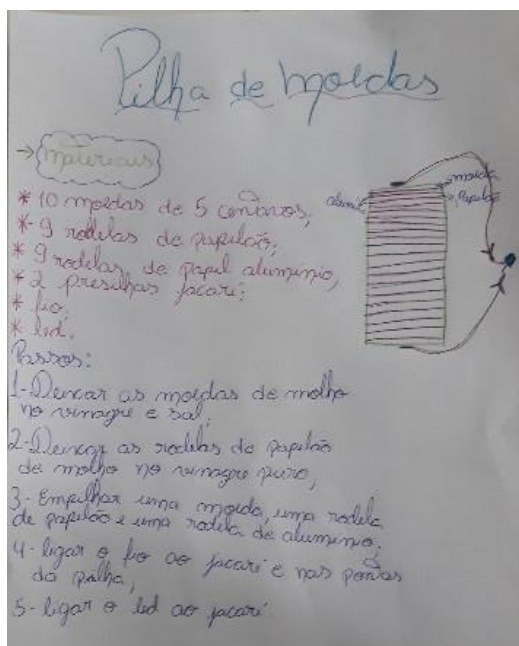 Pilha de moedas
Materiais
* 10 moedas de 5 centavos;
* 9 rodelas de papelão;
* 9 rodelas de papel alumínio,
* 2 presilhas jacaré;
* fio;
* led.
moeda
Papelão
Passos:
1- Deixar as moedas de molho
no vinagre e sal,
2- Deixar as rodelas de papelão
de molho no vinagre puro,
3- Empilhar uma moeda, uma rodela
de papelão e uma rodela de alumínio;
4- ligar o fio ao jacaré e nas pontas
da pilha,
5- ligar o led ao jacaré